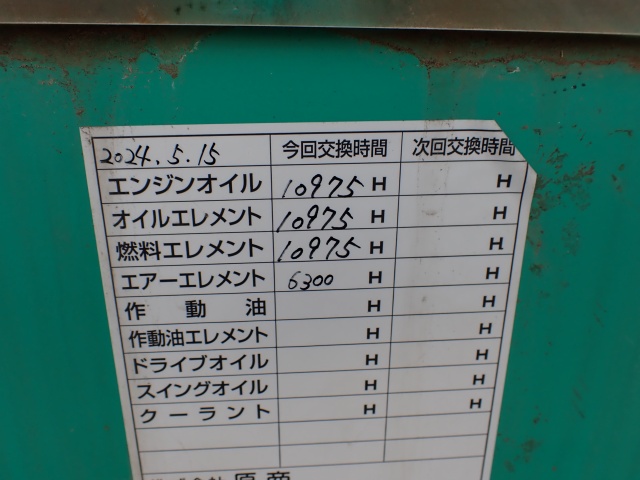 2024.5.15 今回交換時間 次回交換時間
エンジンオイル 10975 H H
オイルエレメント 10975 H H
燃料エレメント 10975 H H
エアーエレメント 6300 H H
作動油 H H
作動油エレメント H H
ドライブオイル H H
スイングオイル H H
クーラント H H